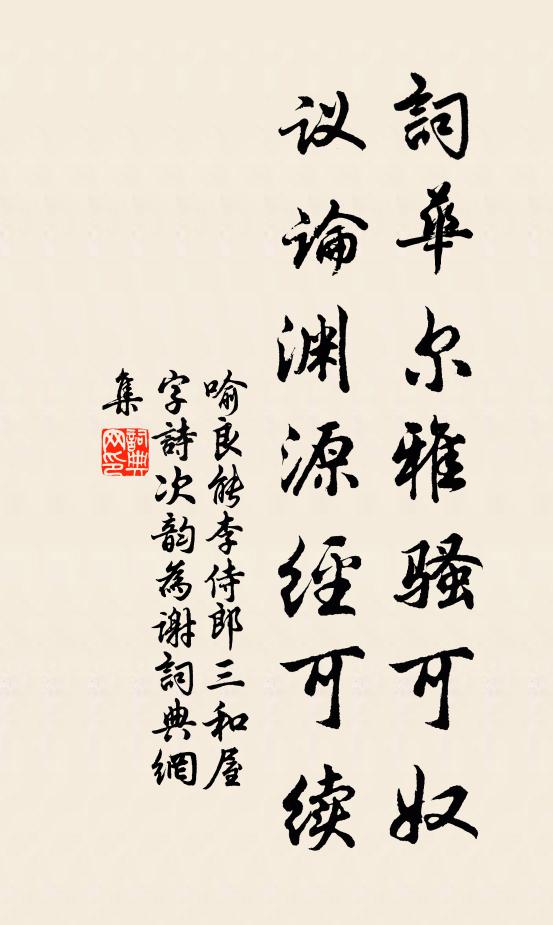 詞華尔雅骚可奴
议論渊源經可续
喻良能李侍郎三和屋
字詩次韵為谢詞典網
集
詞典
网印